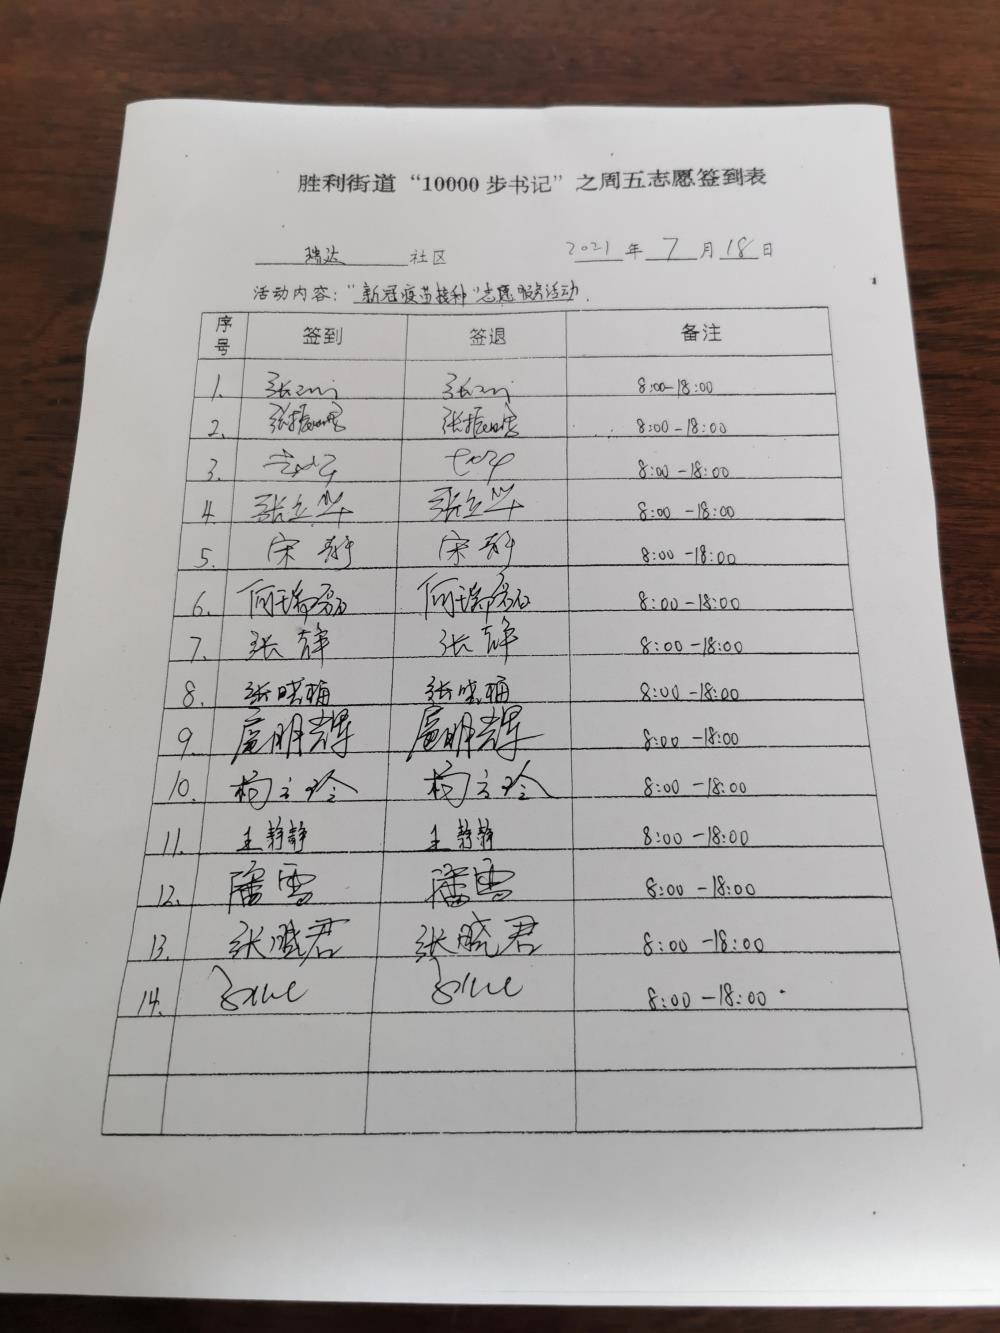 胜利街道“10000步书记”之周五志愿签到表
瑞达 社区 2021 年 7 月 18 日
活动内容：“新冠疫苗接种”志愿服务活动.
序号 签到 签退 备注
1. 张 张 8:00-18:00
2. 张振 张振 8:00-18:00
3. 8:00-18:00
4. 张立华 张立华 8:00-18:00
5. 宋 宋 8:00-18:00
6. 何瑞磊 何瑞磊 8:00-18:00
7. 张静 张静 8:00-18:00
8. 张晓梅 张晓梅 8:00-18:00
9. 扈明辉 扈明辉 8:00-18:00
10. 杨立玲 杨立玲 8:00-18:00
11. 王静静 王静静 8:00-18:00
12. 潘雪 潘雪 8:00-18:00
13. 张晓君 张晓君 8:00-18:00
14. 8:00-18:00